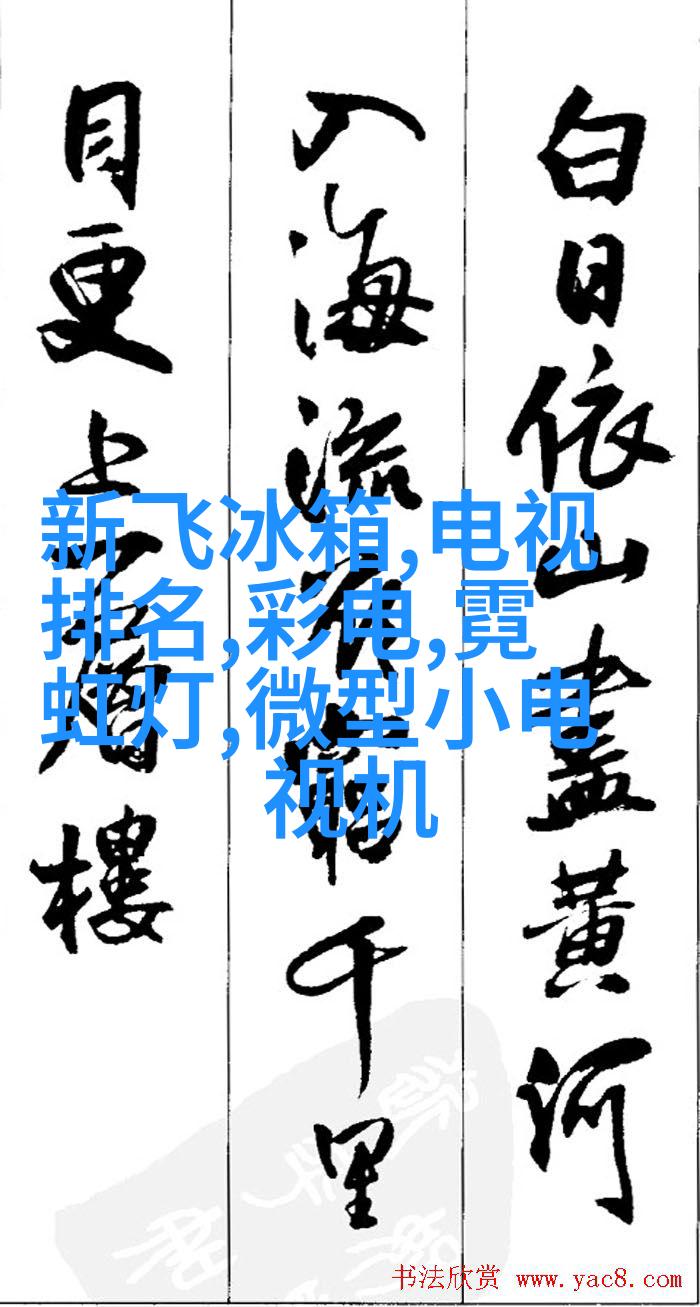 白日依山盡黄河
入海流欲窮千里
目更上一層樓
新飞冰箱,电视
排名,彩电,霓
虹灯,微型小电
视机
书法欣赏 www.yac8.com